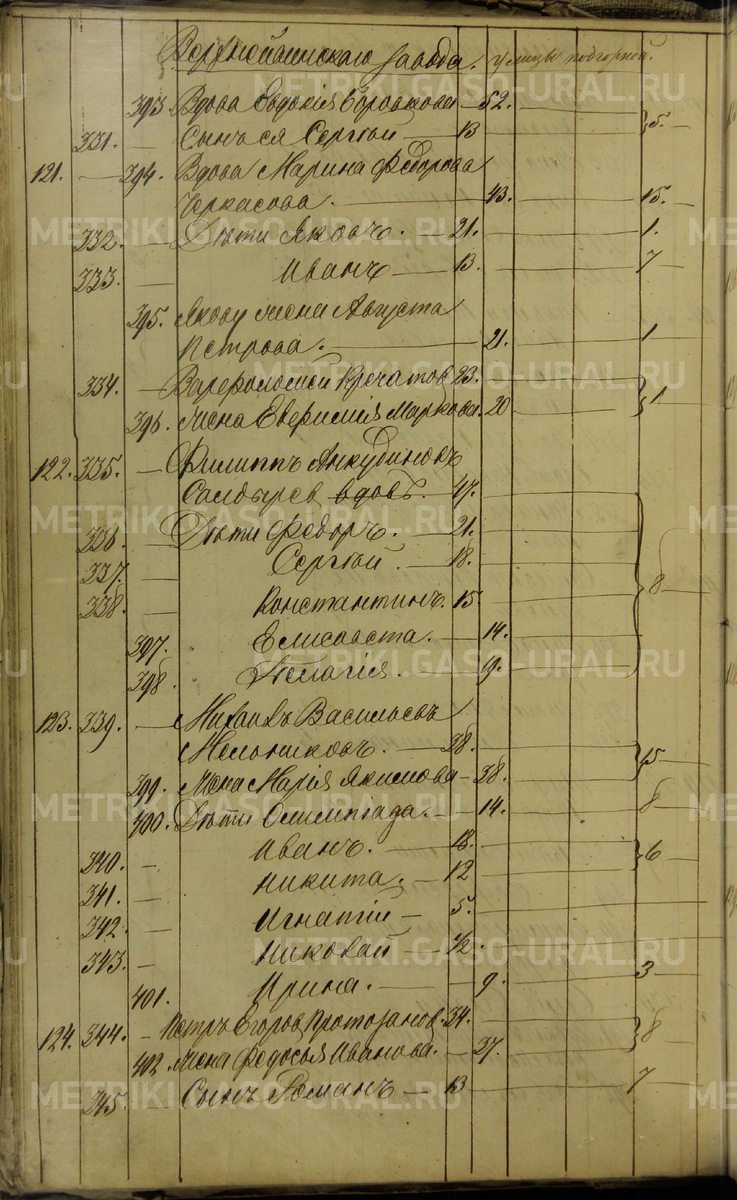 завода. улицы подгорной.
393. Вдова Евдокія Боровкова — 52.
331. — Сынъ ея Сергѣй — 13 — 5.
121. — 394. Вдова Марина Федорова
Черкасова. — 43. — 15.
332. — Дѣти Яковъ. — 21. — 1.
333. — Иванъ — 13. — 7
395. Якову жена Августа
Петрова. — 21. — 1
334. — Варфоломей 23.
396. Жена Евфимия Маркова. 20 — 1
122. 335. — Филиппъ Анкудиновъ
вдовъ. — 47.
336. — Дѣти Федоръ. — 21.
337. — Сергѣй. — 18. — 8
338. — Константинъ. 15.
397. Елисавета. — 14.
398. Пелагія. — 9.
123. 339. — Михаилъ Васильевъ
Мельниковъ. — 38.
399. Жена Марія Якимова — 38. — 15
400. Дѣти Олимпіада. — 14. — 8
340. — Иванъ. — 18.
341. — Никита. — 12 — 6
342. — Игнатій — 5.
343. — Николай 1/2.
401. Ирина. — 9. — 3
124. 344. — Петръ Егоровъ Протозановъ. 34.
402. Жена Федосья Иванова. — 37. — 8
345. — Сынъ Романъ — 13 — 7
METRIKI.GASO-URAL.RU